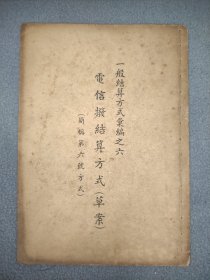 一般結算方式彙編之六
電信撥結算方式(草案)
(簡稱第六號方式)